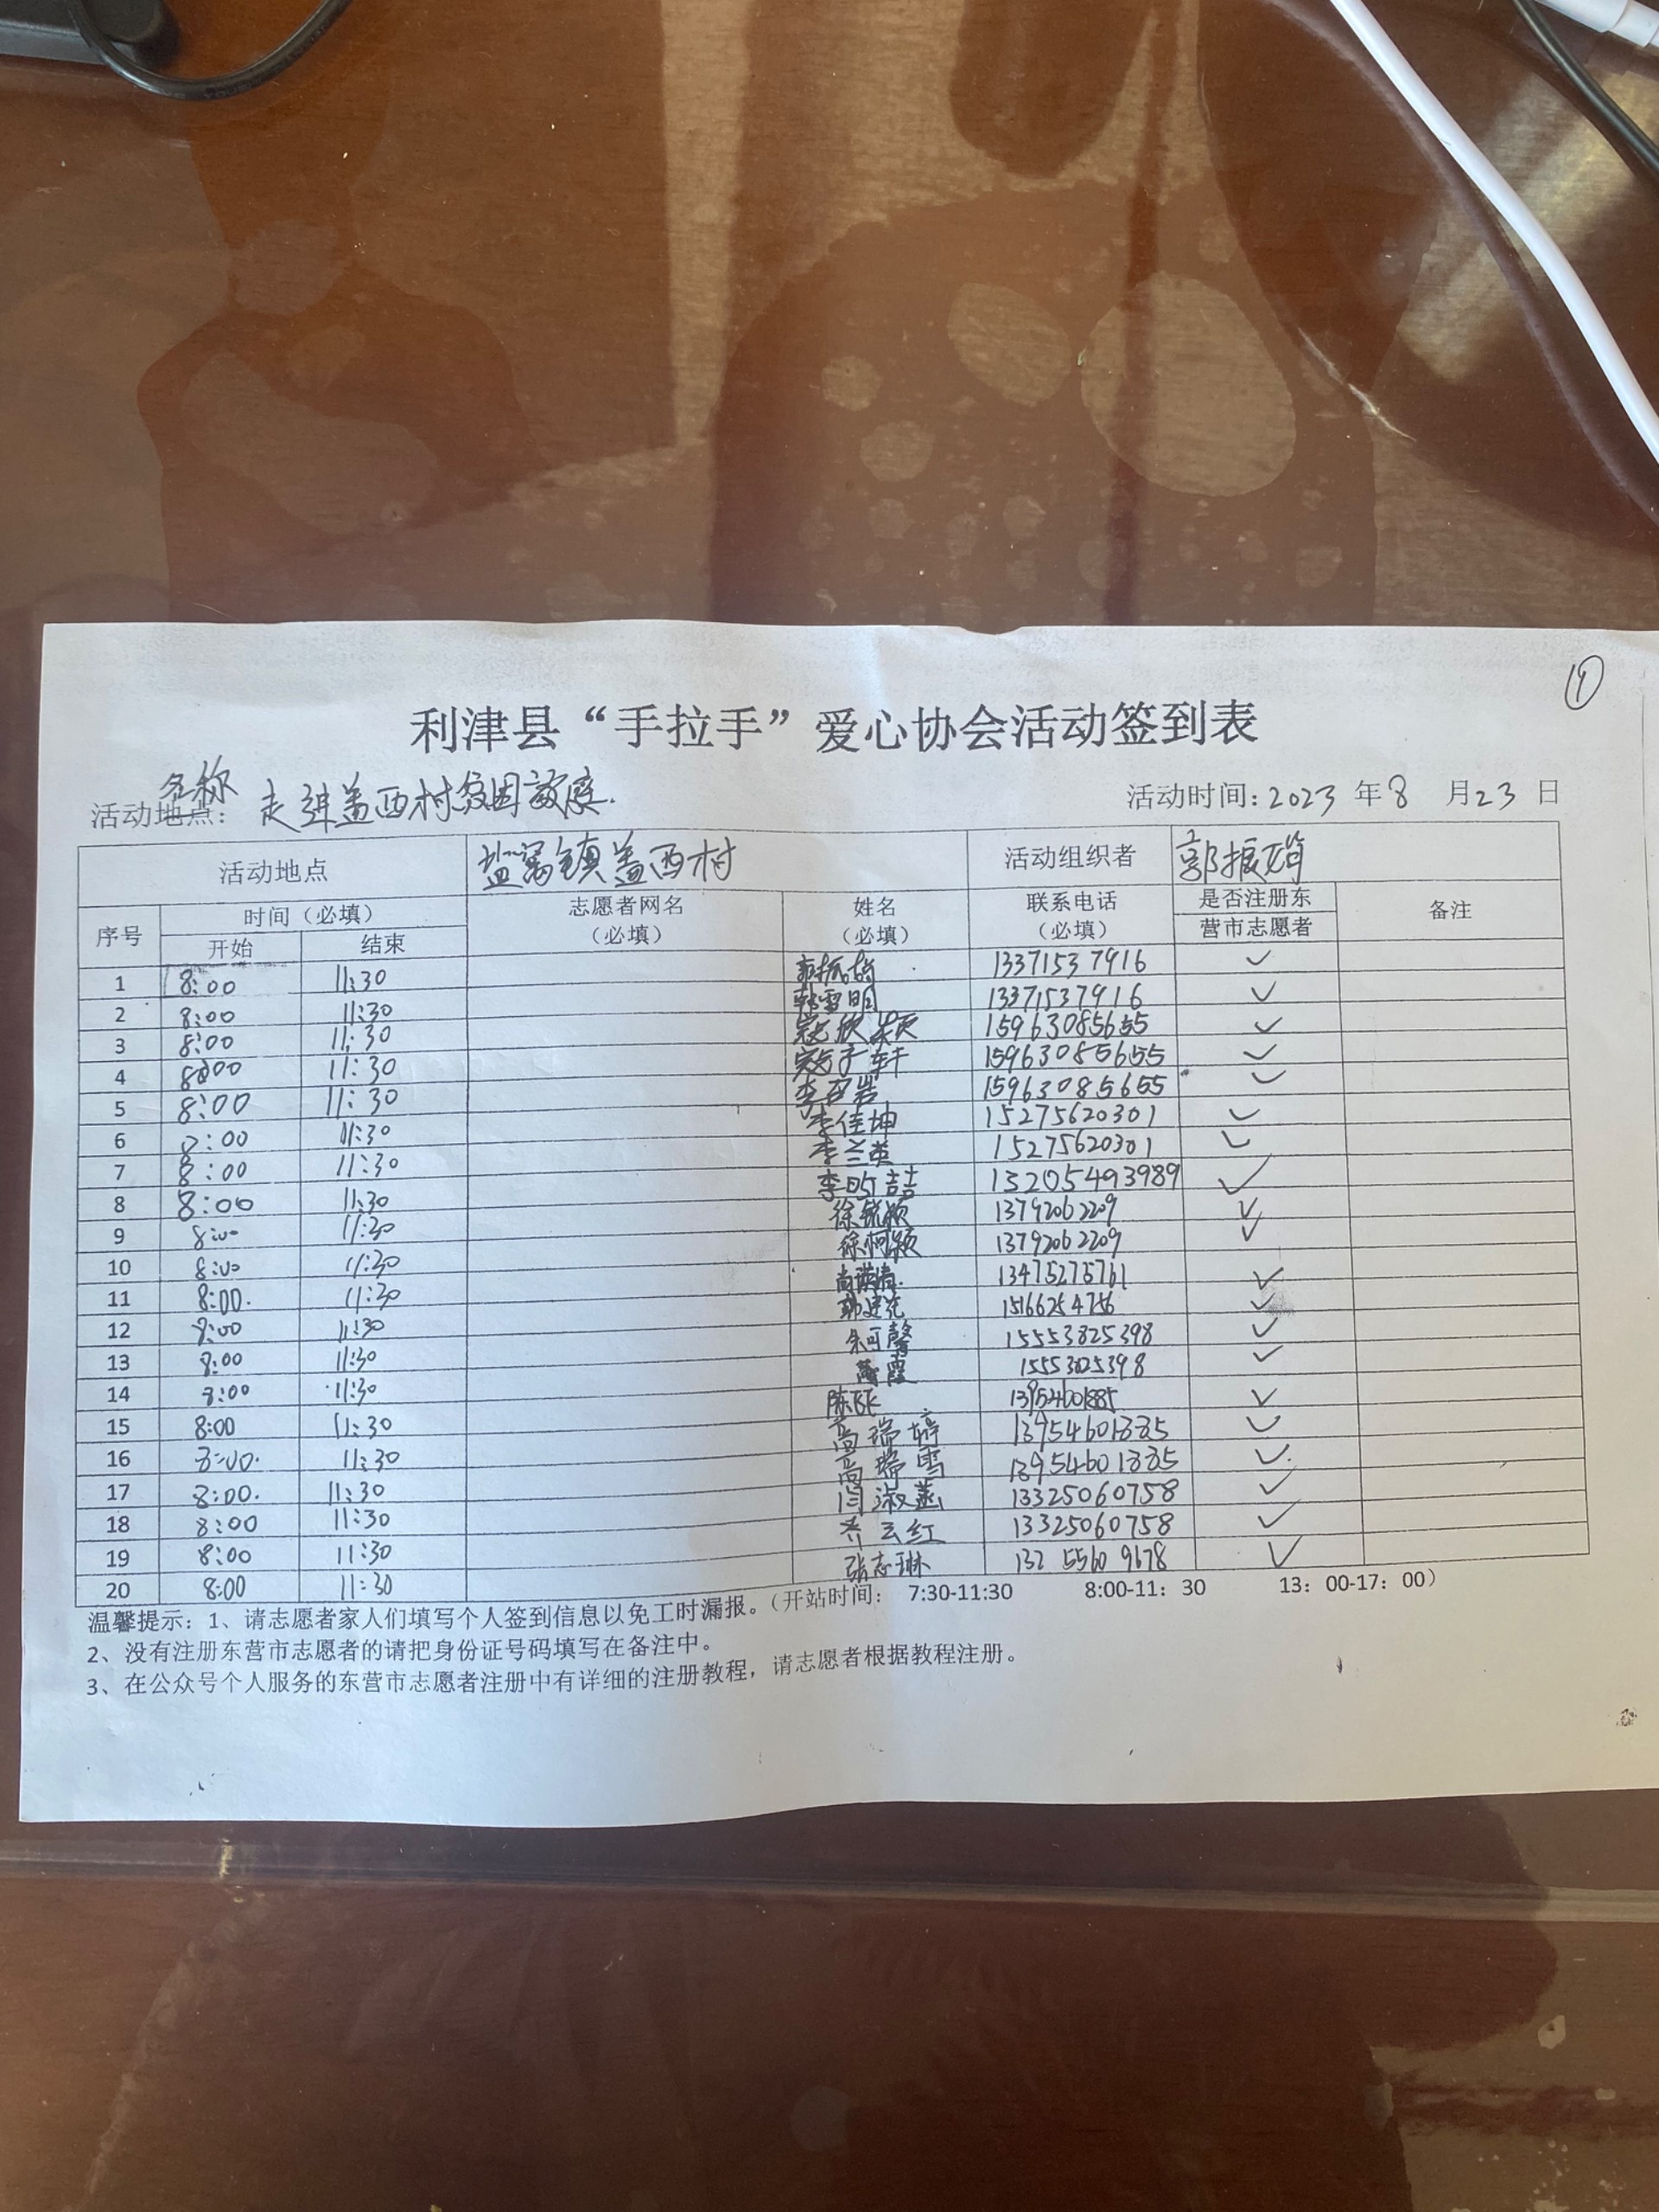 利津县“手拉手”爱心协会活动签到表
名称
活动地点: 走进盖西村贫困家庭. 活动时间: 2023 年 8 月 23 日
活动地点 盐窝镇盖西村 活动组织者 郭振
序号 时间（必填） 志愿者网名（必填） 姓名（必填） 联系电话（必填） 是否注册东营市志愿者 备注
开始 结束
1 8:00 11:30 13371537916 ✓
2 8:00 11:30 韩雪明 13371537916 ✓
3 8:00 11:30 寇欣颖 15963085655 ✓
4 8:00 11:30 寇子轩 15963085655 ✓
5 8:00 11:30 李 15963085655 ✓
6 8:00 11:30 李佳坤 15275620301 ✓
7 8:00 11:30 李兰英 15275620301 ✓
8 8:00 11:30 李昀喆 13205493989 ✓
9 8:00 11:30 徐锐颖 13792062209 ✓
10 8:00 11:30 徐柯颖 13792062209 ✓
11 8:00. 11:30 13475275761 ✓
12 8:00 11:30 15166254756 ✓
13 8:00 11:30 可馨 15553825398 ✓
14 8:00 11:30 霞 15553825398 ✓
15 8:00 11:30 陈 13954601885 ✓
16 8:00. 11:30 高瑞婷 13954601885 ✓
17 8:00. 11:30 高瑞雪 13954601885 ✓
18 8:00 11:30 闫淑 13325060758 ✓
19 8:00 11:30 齐云红 13325060758 ✓
20 8:00 11:30 张志琳 132 5560 9678 ✓
温馨提示: 1、请志愿者家人们填写个人签到信息以免工时漏报。（开站时间: 7:30-11:30 8:00-11: 30 13: 00-17: 00）
2、没有注册东营市志愿者的请把身份证号码填写在备注中。
3、在公众号个人服务的东营市志愿者注册中有详细的注册教程，请志愿者根据教程注册。